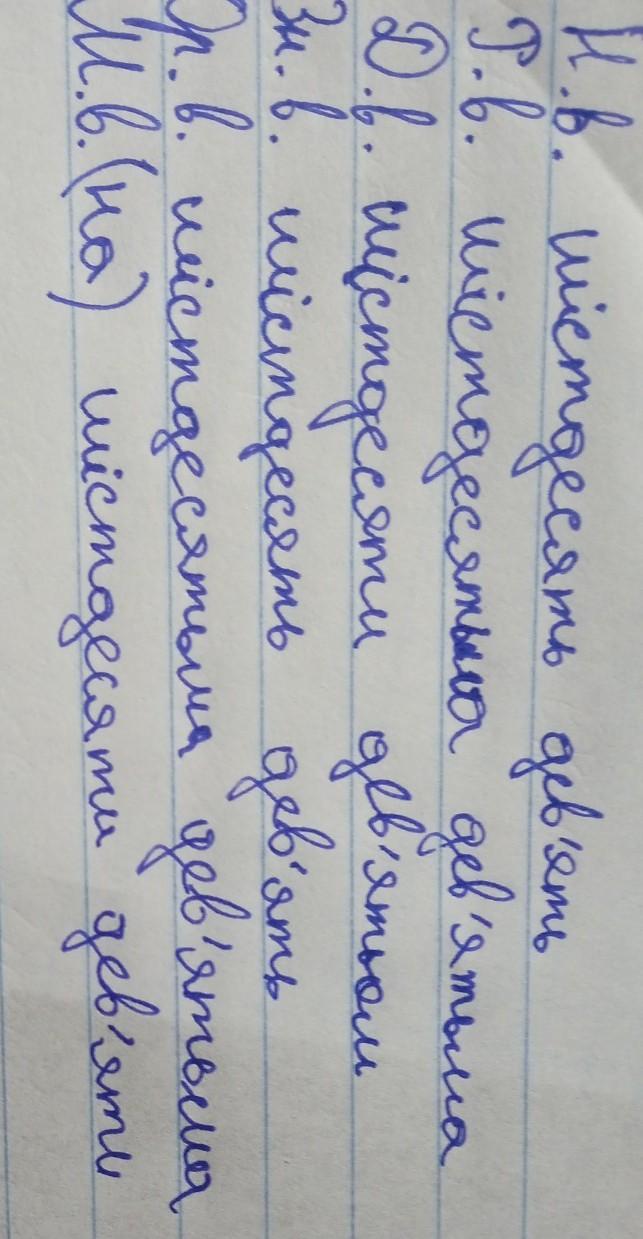 Н.в. шістдесять дев'ять
Р.в. шістдесятьма дев'ятьма
Д.в. шістдесяти дев'ятьом
Зн.в. шістдесять дев'ять
Ор.в. шістдесятьма дев'ятьма
М.в. (на) шістдесяти дев'яти